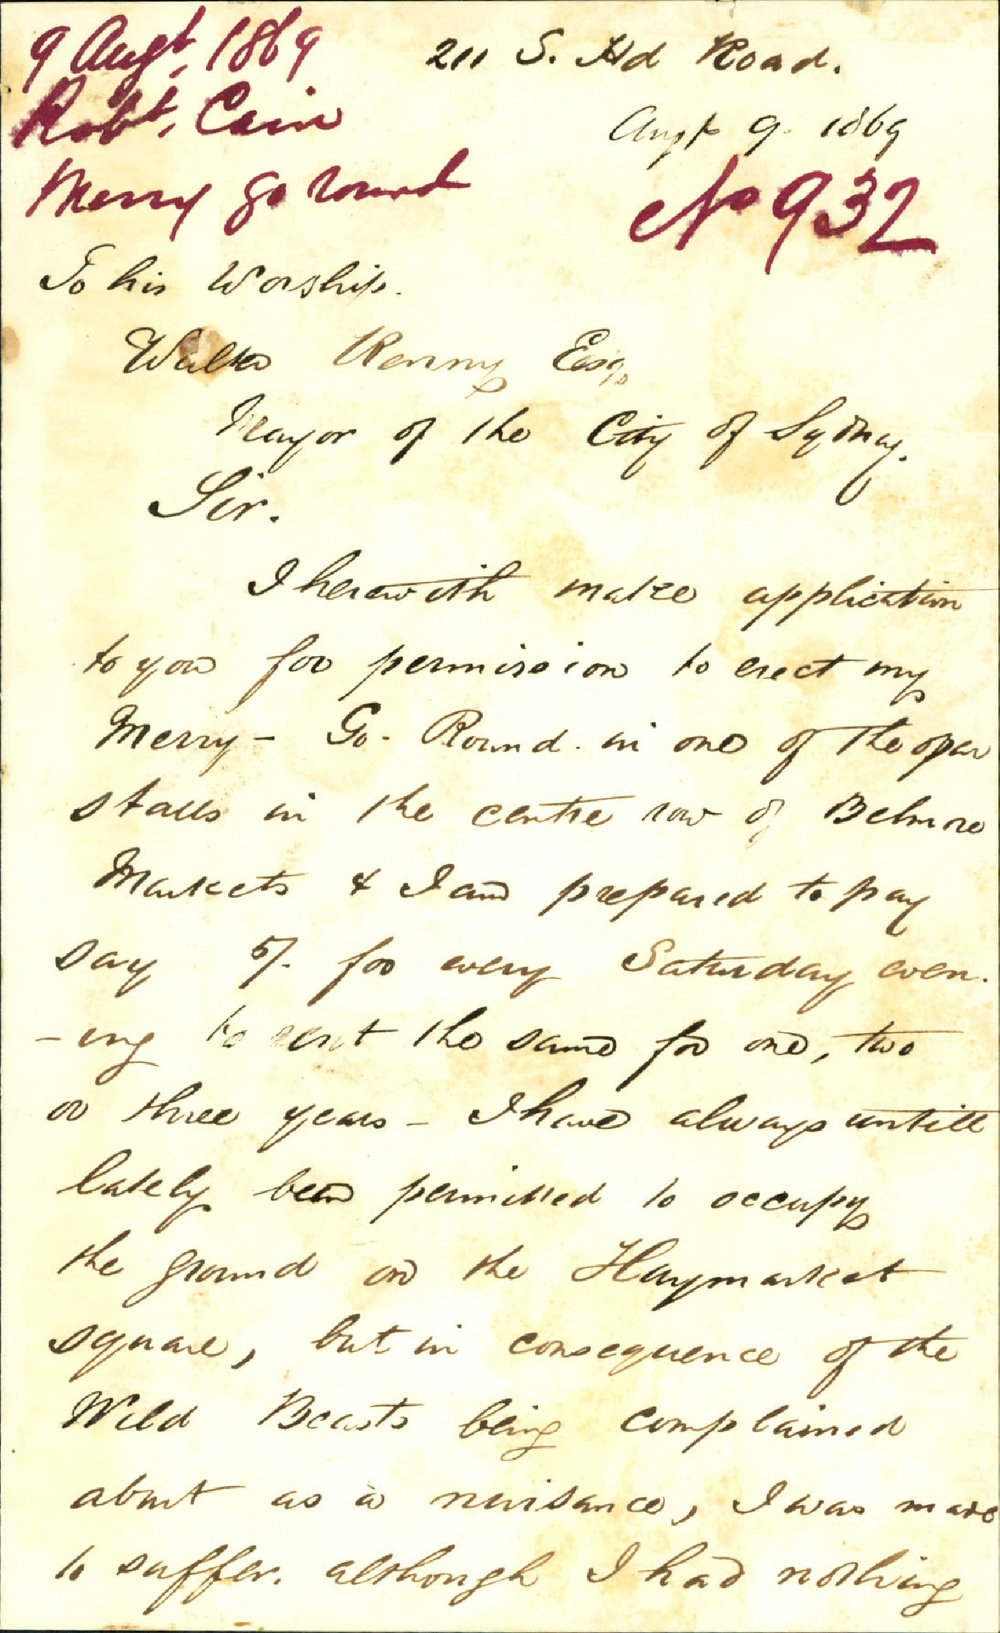 9 Augt, 1869
Robt, Cain
Merry go round
211 S. Hd Road.
Augt 9. 1869
No 932
To his Worship.
Walter Renny Esq,
Mayor of the City of Sydney.
Sir.
I herewith make application
to you for permission to erect my
Merry - Go - Round in one of the open
stalls in the centre row of Belmore
Markets & I am prepared to pay
say 5/- for every Saturday even.
-ing to rent the same for one, two
or three years - I have always untill
lately been permitted to occupy
the ground on the Haymarket
square, but in consequence of the
Wild Beasts being complained
about as a nuisance, I was made
to suffer. although I had nothing